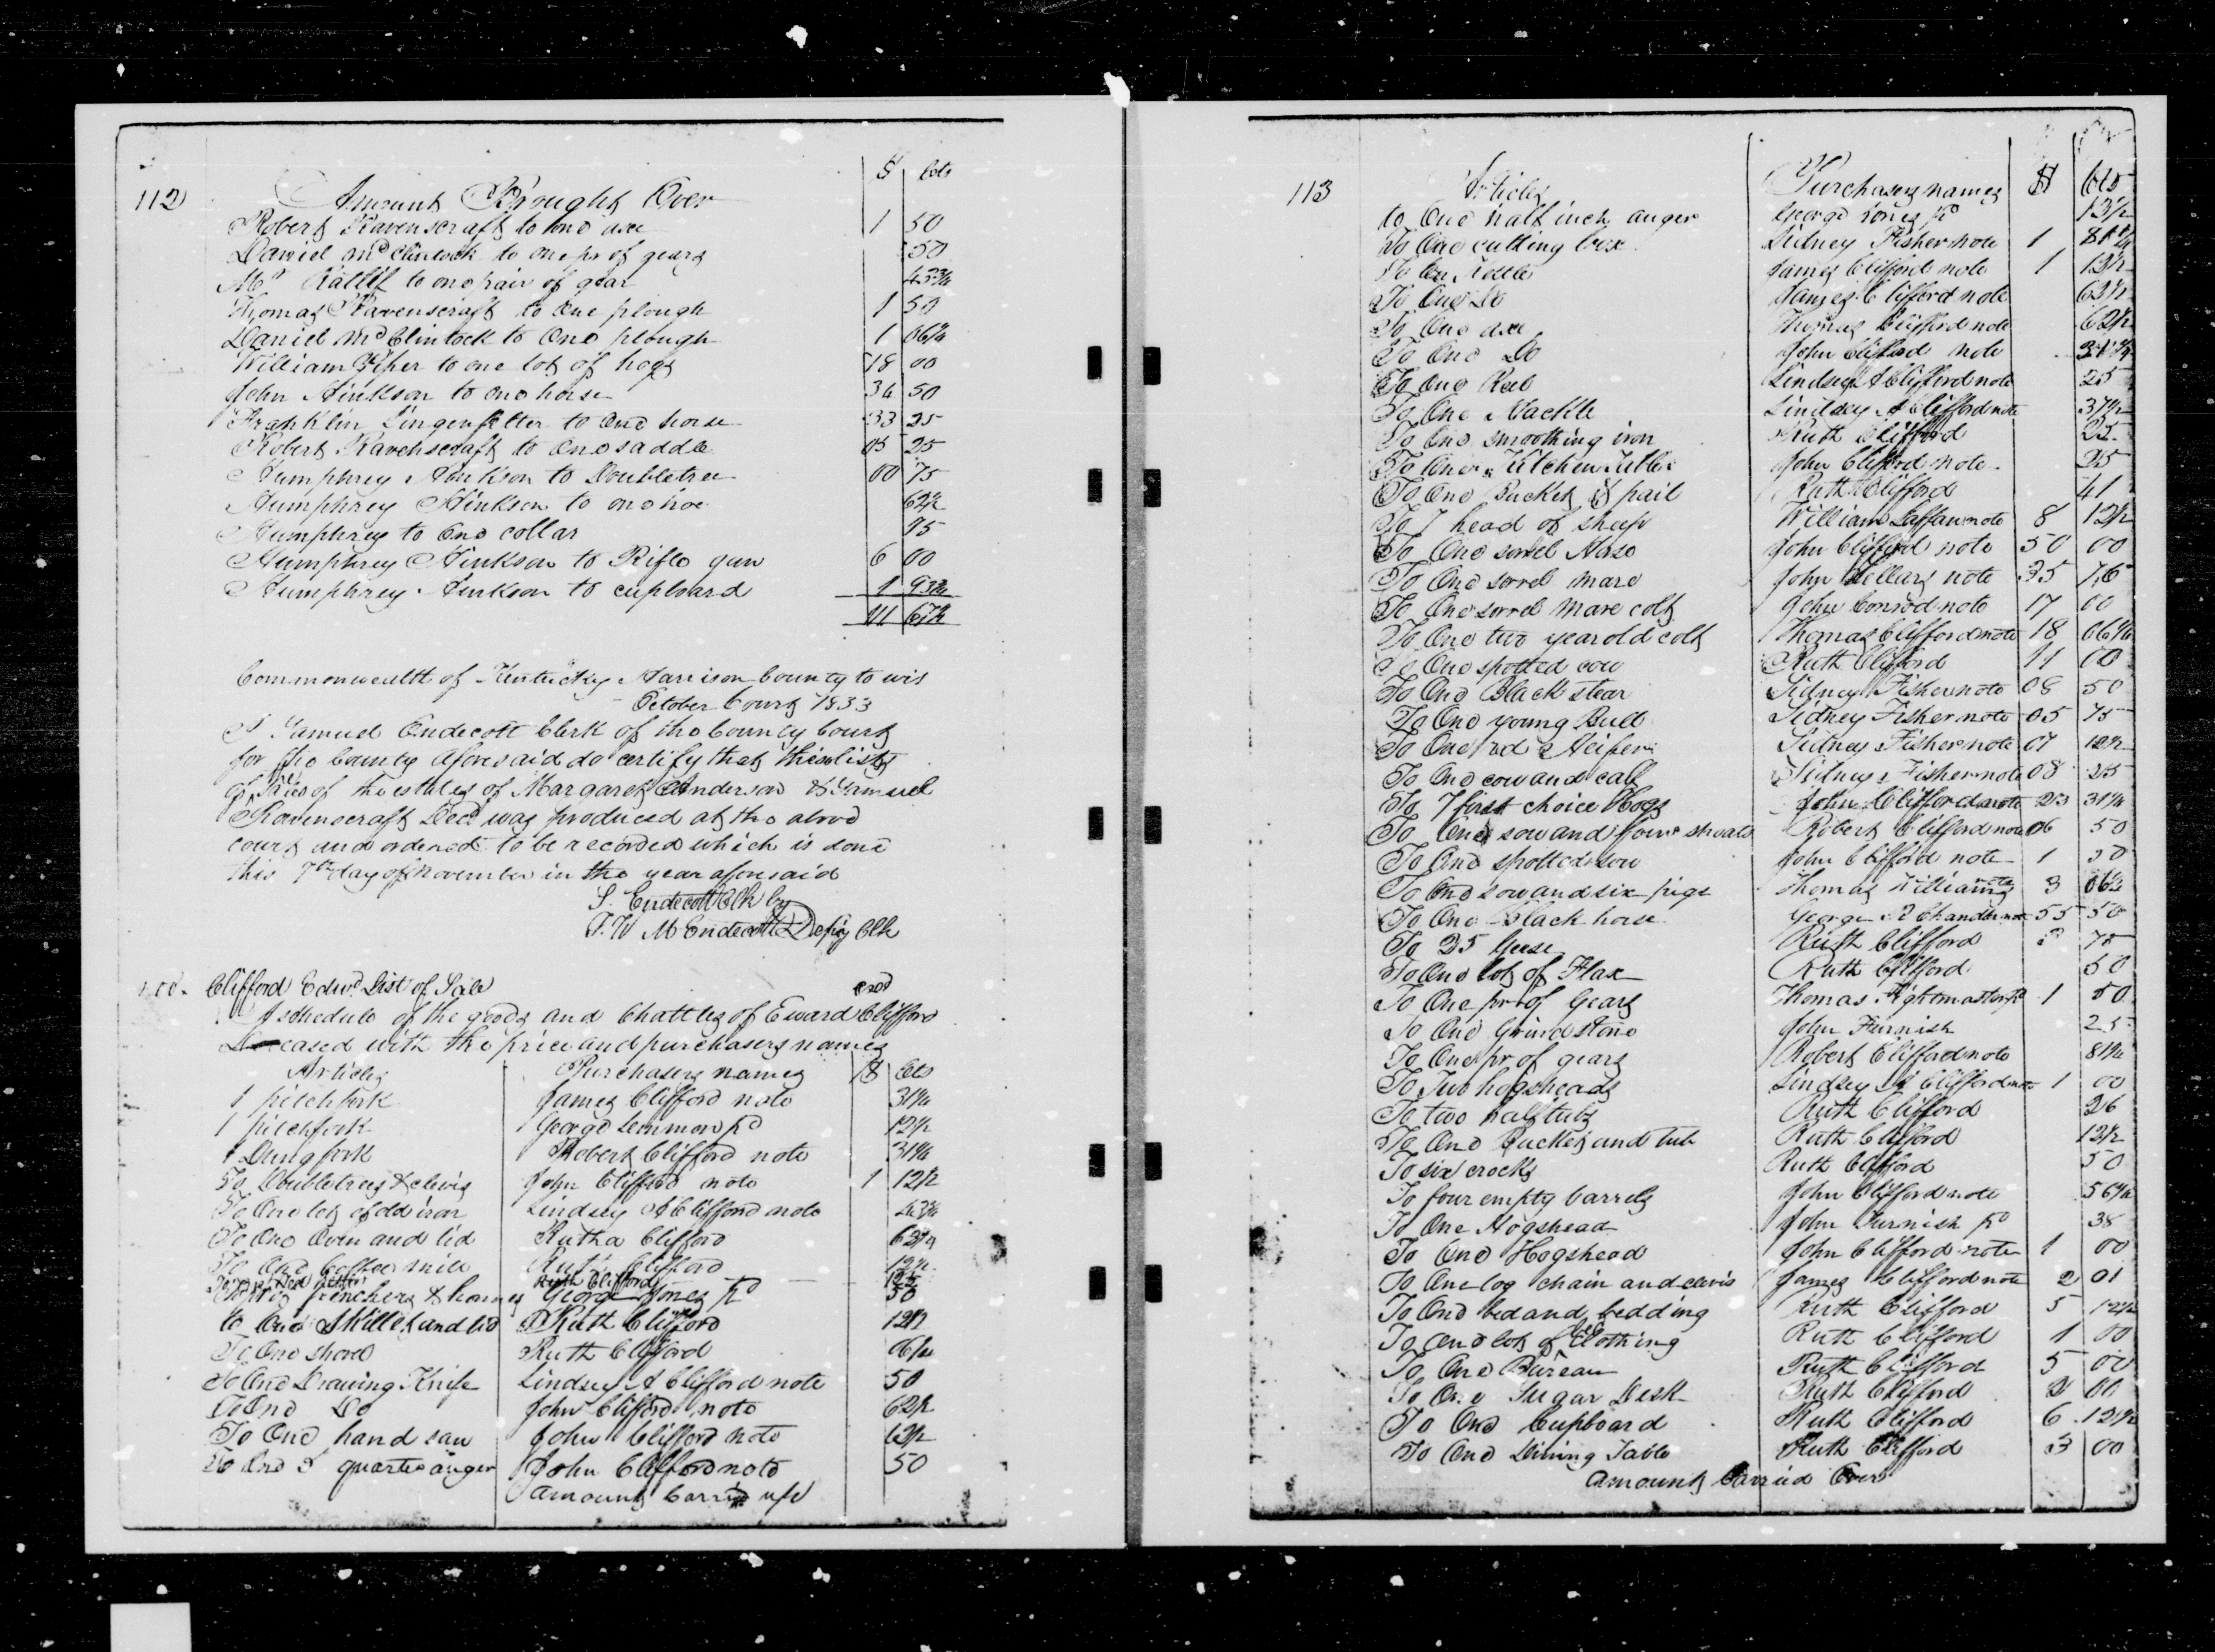 112
$ Cts
Amount Brought Over
Robert Ravenscraft to one axe 1 50
Daniel McClintock to one pr of gears 50
Mr Ratlif to one pair of gear 43 3/4
Thomas Ravenscraft to One plough 1 50
Daniel McClintock to One plough 1 06 1/4
William to one lot of hogs 18 00
John Hinkson to one horse 36 50
Franklin Lingenfelter to One horse 33 25
Robert Ravenscraft to One saddle 05 25
Humphrey Hinkson to Doubletree 00 75
Humphrey Hinkson to one hoe 62 1/2
Humphrey to One collar 95
Humphrey Hinkson to Rifle gun 6 00
Humphrey Hinkson to cupboard 1 93 3/4
111 67 1/2
Commonwealth of Kentucky Harrison County to wit
October Court 1833
I Samuel Endecott Clerk of the County Court
for the County Aforesaid do certify that
of of the estates of Margaret Anderson & Samuel
Ravenscraft Decd was produced at the above
court and ordered to be recorded which is done
this 7th day of November in the year aforesaid
S. Endecott Clk by
J. W M Endecott Depty Clk
Clifford Edwd List of Sale
A schedule of the goods and Chattles of Eward Clifford
Deceased with the price and purchasers names
Articles Purchasers names $ Cts
1 pitchfork James Clifford note 31 1/4
1 pitchfork George Lemmon pd 12 1/2
1 Dung fork Robert Clifford note 31 1/4
To Doubletrees & clevis John Clifford note 1 12 1/2
To One lot of old iron Lindsey A Clifford note 43 3/4
To One Oven and lid Rutha Clifford 62 1/2
To One Coffee mill Ruth Clifford 12 1/2
Ruth Clifford 12 1/2
George Jones pd 50
to One Skillet and lid Ruth Clifford 12 1/2
To One shovel Ruth Clifford 06 1/4
To One Drawing Knife Lindsey A Clifford note 50
To One Do John Clifford note 62 1/2
To One hand saw John Clifford note 62 1/2
To One 3 quarter auger John Clifford note 50
Amount Carried up
113
Articles Purchasers names $ Cts
to One half inch auger George Jones pd 13 1/2
To One cutting box Sidney Fisher note 1 81 1/4
To One Kettle James Clifford note 1 12 1/2
To One Do James Clifford note 62 1/2
To One axe Thomas Clifford note 62 1/2
To One Do John Clifford note 31 1/4
To One Reel Lindsey A Clifford note 25
To One Hackle Lindsey A Clifford note 37 1/2
To One smoothing iron Ruth Clifford 25
To One Kitchen Table John Clifford note 25
To One Bucket & pail Ruth Clifford 41
To 7 head of sheep William note 8 12 1/2
To One sorrel John Clifford note 50 00
To One sorrel mare John Sellars note 35 75
To One sorrel mare colt John Conrod note 17 00
To One two year old colt Thomas Clifford note 18 06 1/4
To One spotted cow Ruth Clifford 11 00
To One Black stear Sidney Fisher note 08 50
To One young Bull Sidney Fisher note 05 75
To One red Heifer Sidney Fisher note 07 12 1/2
To One cow and calf Sidney Fisher note 08 25
To 7 first choice Hogs John Clifford note 23 31 1/4
To One sow and four shoats Robert Clifford note 06 50
To One spotted sow John Clifford note 1 50
To One sow and six pigs Thomas Williams note 3 06 1/4
To One black horse George R Chandler note 55 50
To 35 Geese Ruth Clifford 75
To One lot of Flax Ruth Clifford 50
To One pr of Gears Thomas Hightmaster pd 1 50
To One Grind Stone John Furnish 25
To One pr of gears Robert Clifford note 81 1/4
To Two hogsheads Lindsey A Clifford note 1 00
To two half tubs Ruth Clifford 26
To One Bucket and tub Ruth Clifford 12 1/2
To six crocks Ruth Clifford 50
To four empty barrels John Clifford note 56 1/4
To One Hogshead John Furnish pd 38
To One Hogshead John Clifford note 1 00
To One log chain and clevis James Clifford note 2 01
To One bed and bedding Ruth Clifford 5 12 1/2
To One lot of bed Clothing Ruth Clifford 1 00
To One Bureau Ruth Clifford 5 00
To One Sugar Desk Ruth Clifford 2 00
To One Cupboard Ruth Clifford 6 12 1/2
To One Dining Table Ruth Clifford 3 00
Amount Carried Over